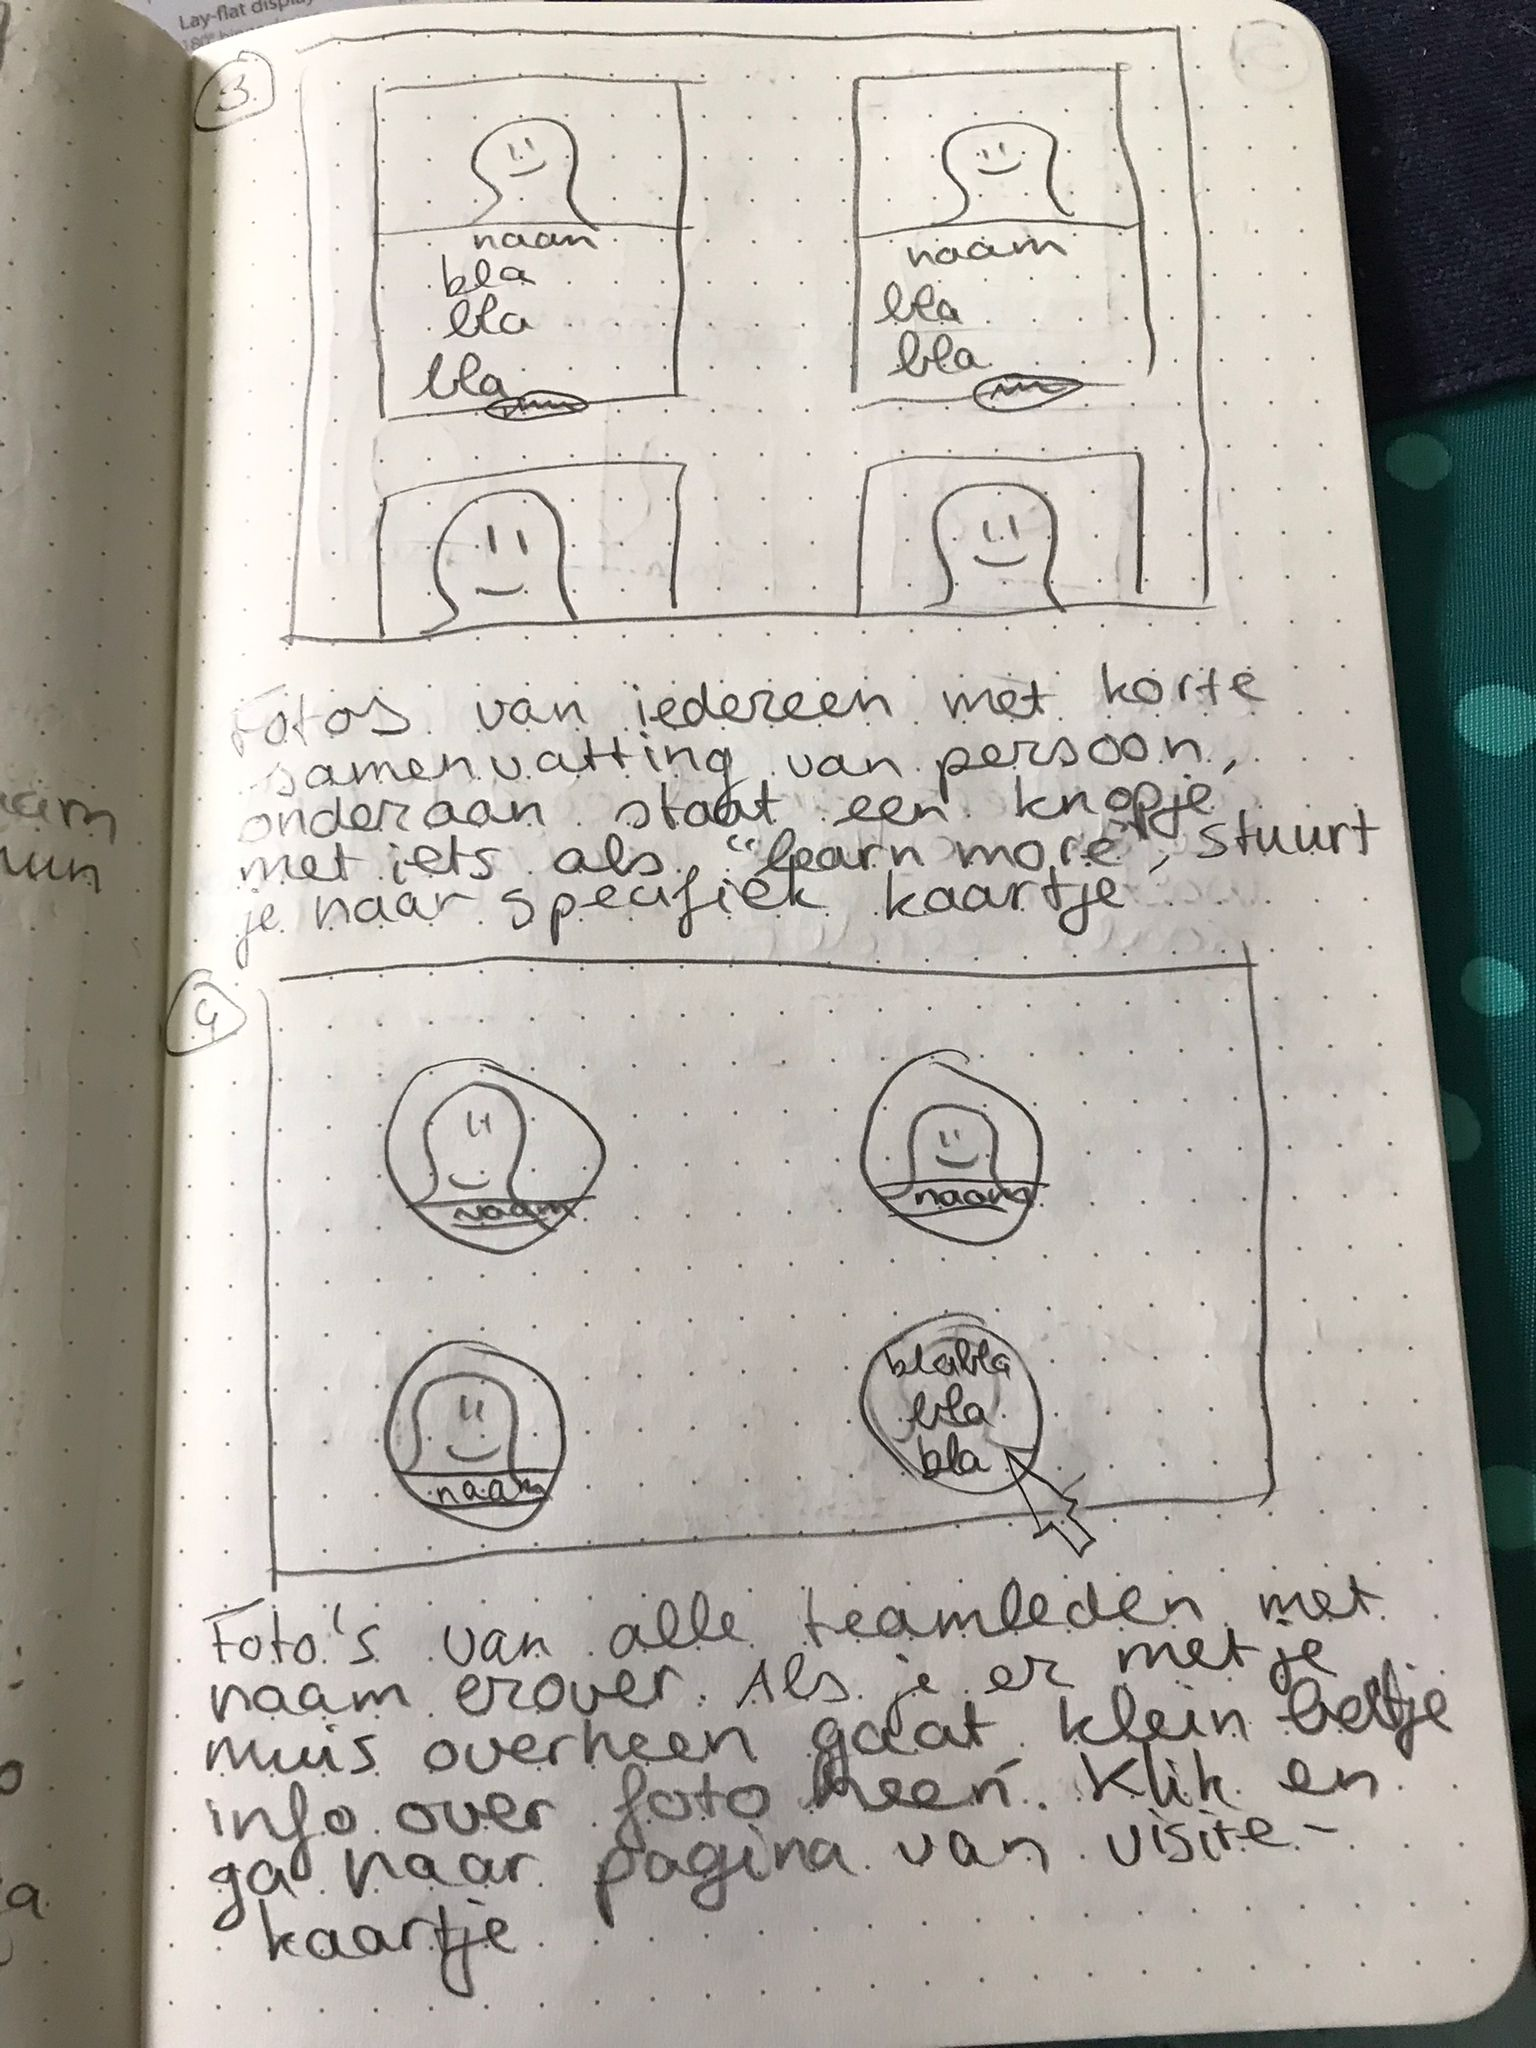 Lay-flat display
3.
naam
bla
bla
bla
naam
bla
bla
Fotos van iedereen met korte
samenvatting van persoon,
onderaan staat een knopje
met iets als "learn more", stuurt
je naar specifiek kaartje
4
naam
naam
naam
blabla
bla
bla
Foto's van alle teamleden met
naam erover. Als je er met je
muis overheen gaat klein beetje
info over foto heen. Klik en
ga naar pagina van visite-
kaartje